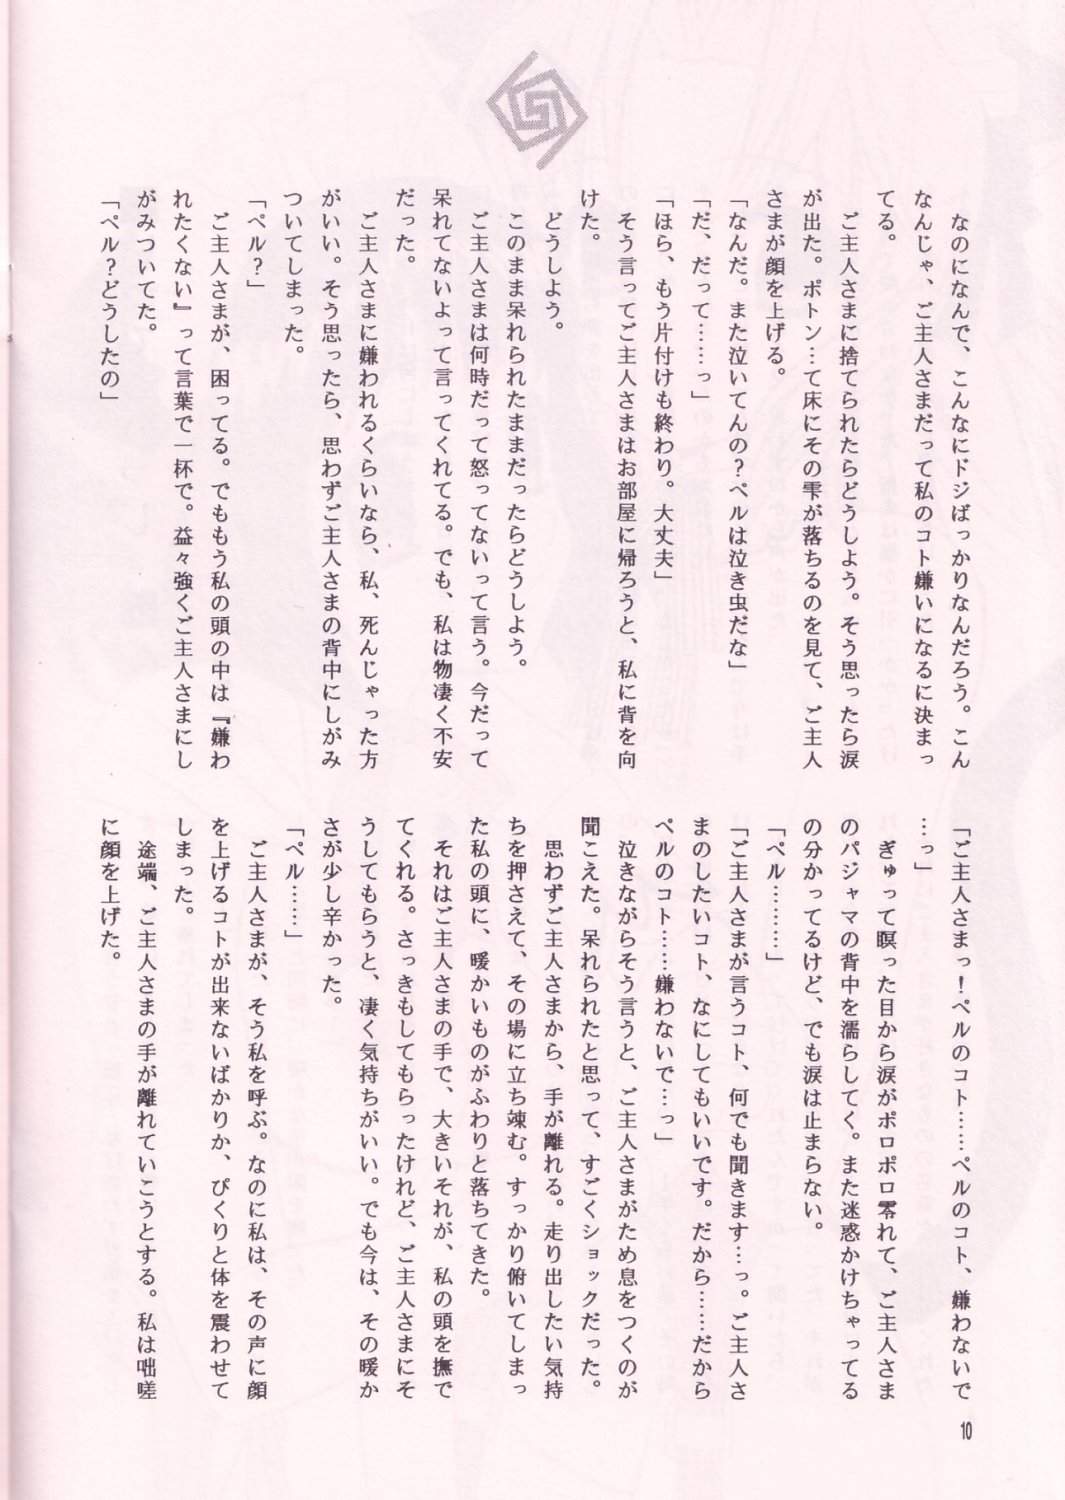 なのになんで、こんなにドジばっかりなんだろう。こん
なんじゃ、ご主人さまだって私のコト嫌いになるに決まっ
てる。
ご主人さまに捨てられたらどうしよう。そう思ったら涙
が出た。ポトン…て床にその雫が落ちるのを見て、ご主人
さまが顔を上げる。
「なんだ。また泣いてんの？ペルは泣き虫だな」
「だ、だって……っ」
「ほら、もう片付けも終わり。大丈夫」
そう言ってご主人さまはお部屋に帰ろうと、私に背を向
けた。
どうしよう。
このまま呆れられたままだったらどうしよう。
ご主人さまは何時だって怒ってないって言う。今だって
呆れてないよって言ってくれてる。でも、私は物凄く不安
だった。
ご主人さまに嫌われるくらいなら、私、死んじゃった方
がいい。そう思ったら、思わずご主人さまの背中にしがみ
ついてしまった。
「ペル？」
ご主人さまが、困ってる。でももう私の頭の中は『嫌わ
れたくない』って言葉で一杯で。益々強くご主人さまにし
がみついてた。
「ペル？どうしたの」
「ご主人さまっ！ペルのコト……ペルのコト、嫌わないで
…っ」
ぎゅって瞑った目から涙がポロポロ零れて、ご主人さま
のパジャマの背中を濡らしてく。また迷惑かけちゃってる
の分かってるけど、でも涙は止まらない。
「ペル………」
「ご主人さまが言うコト、何でも聞きます…っ。ご主人さ
まのしたいコト、なにしてもいいです。だから……だから
ペルのコト……嫌わないで…っ」
泣きながらそう言うと、ご主人さまがため息をつくのが
聞こえた。呆れられたと思って、すごくショックだった。
思わずご主人さまから、手が離れる。走り出したい気持
ちを押さえて、その場に立ち竦む。すっかり俯いてしまっ
た私の頭に、暖かいものがふわりと落ちてきた。
それはご主人さまの手で、大きいそれが、私の頭を撫で
てくれる。さっきもしてもらったけれど、ご主人さまにそ
うしてもらうと、凄く気持ちがいい。でも今は、その暖か
さが少し辛かった。
「ペル……」
ご主人さまが、そう私を呼ぶ。なのに私は、その声に顔
を上げるコトが出来ないばかりか、ぴくりと体を震わせて
しまった。
途端、ご主人さまの手が離れていこうとする。私は咄嗟
に顔を上げた。
10